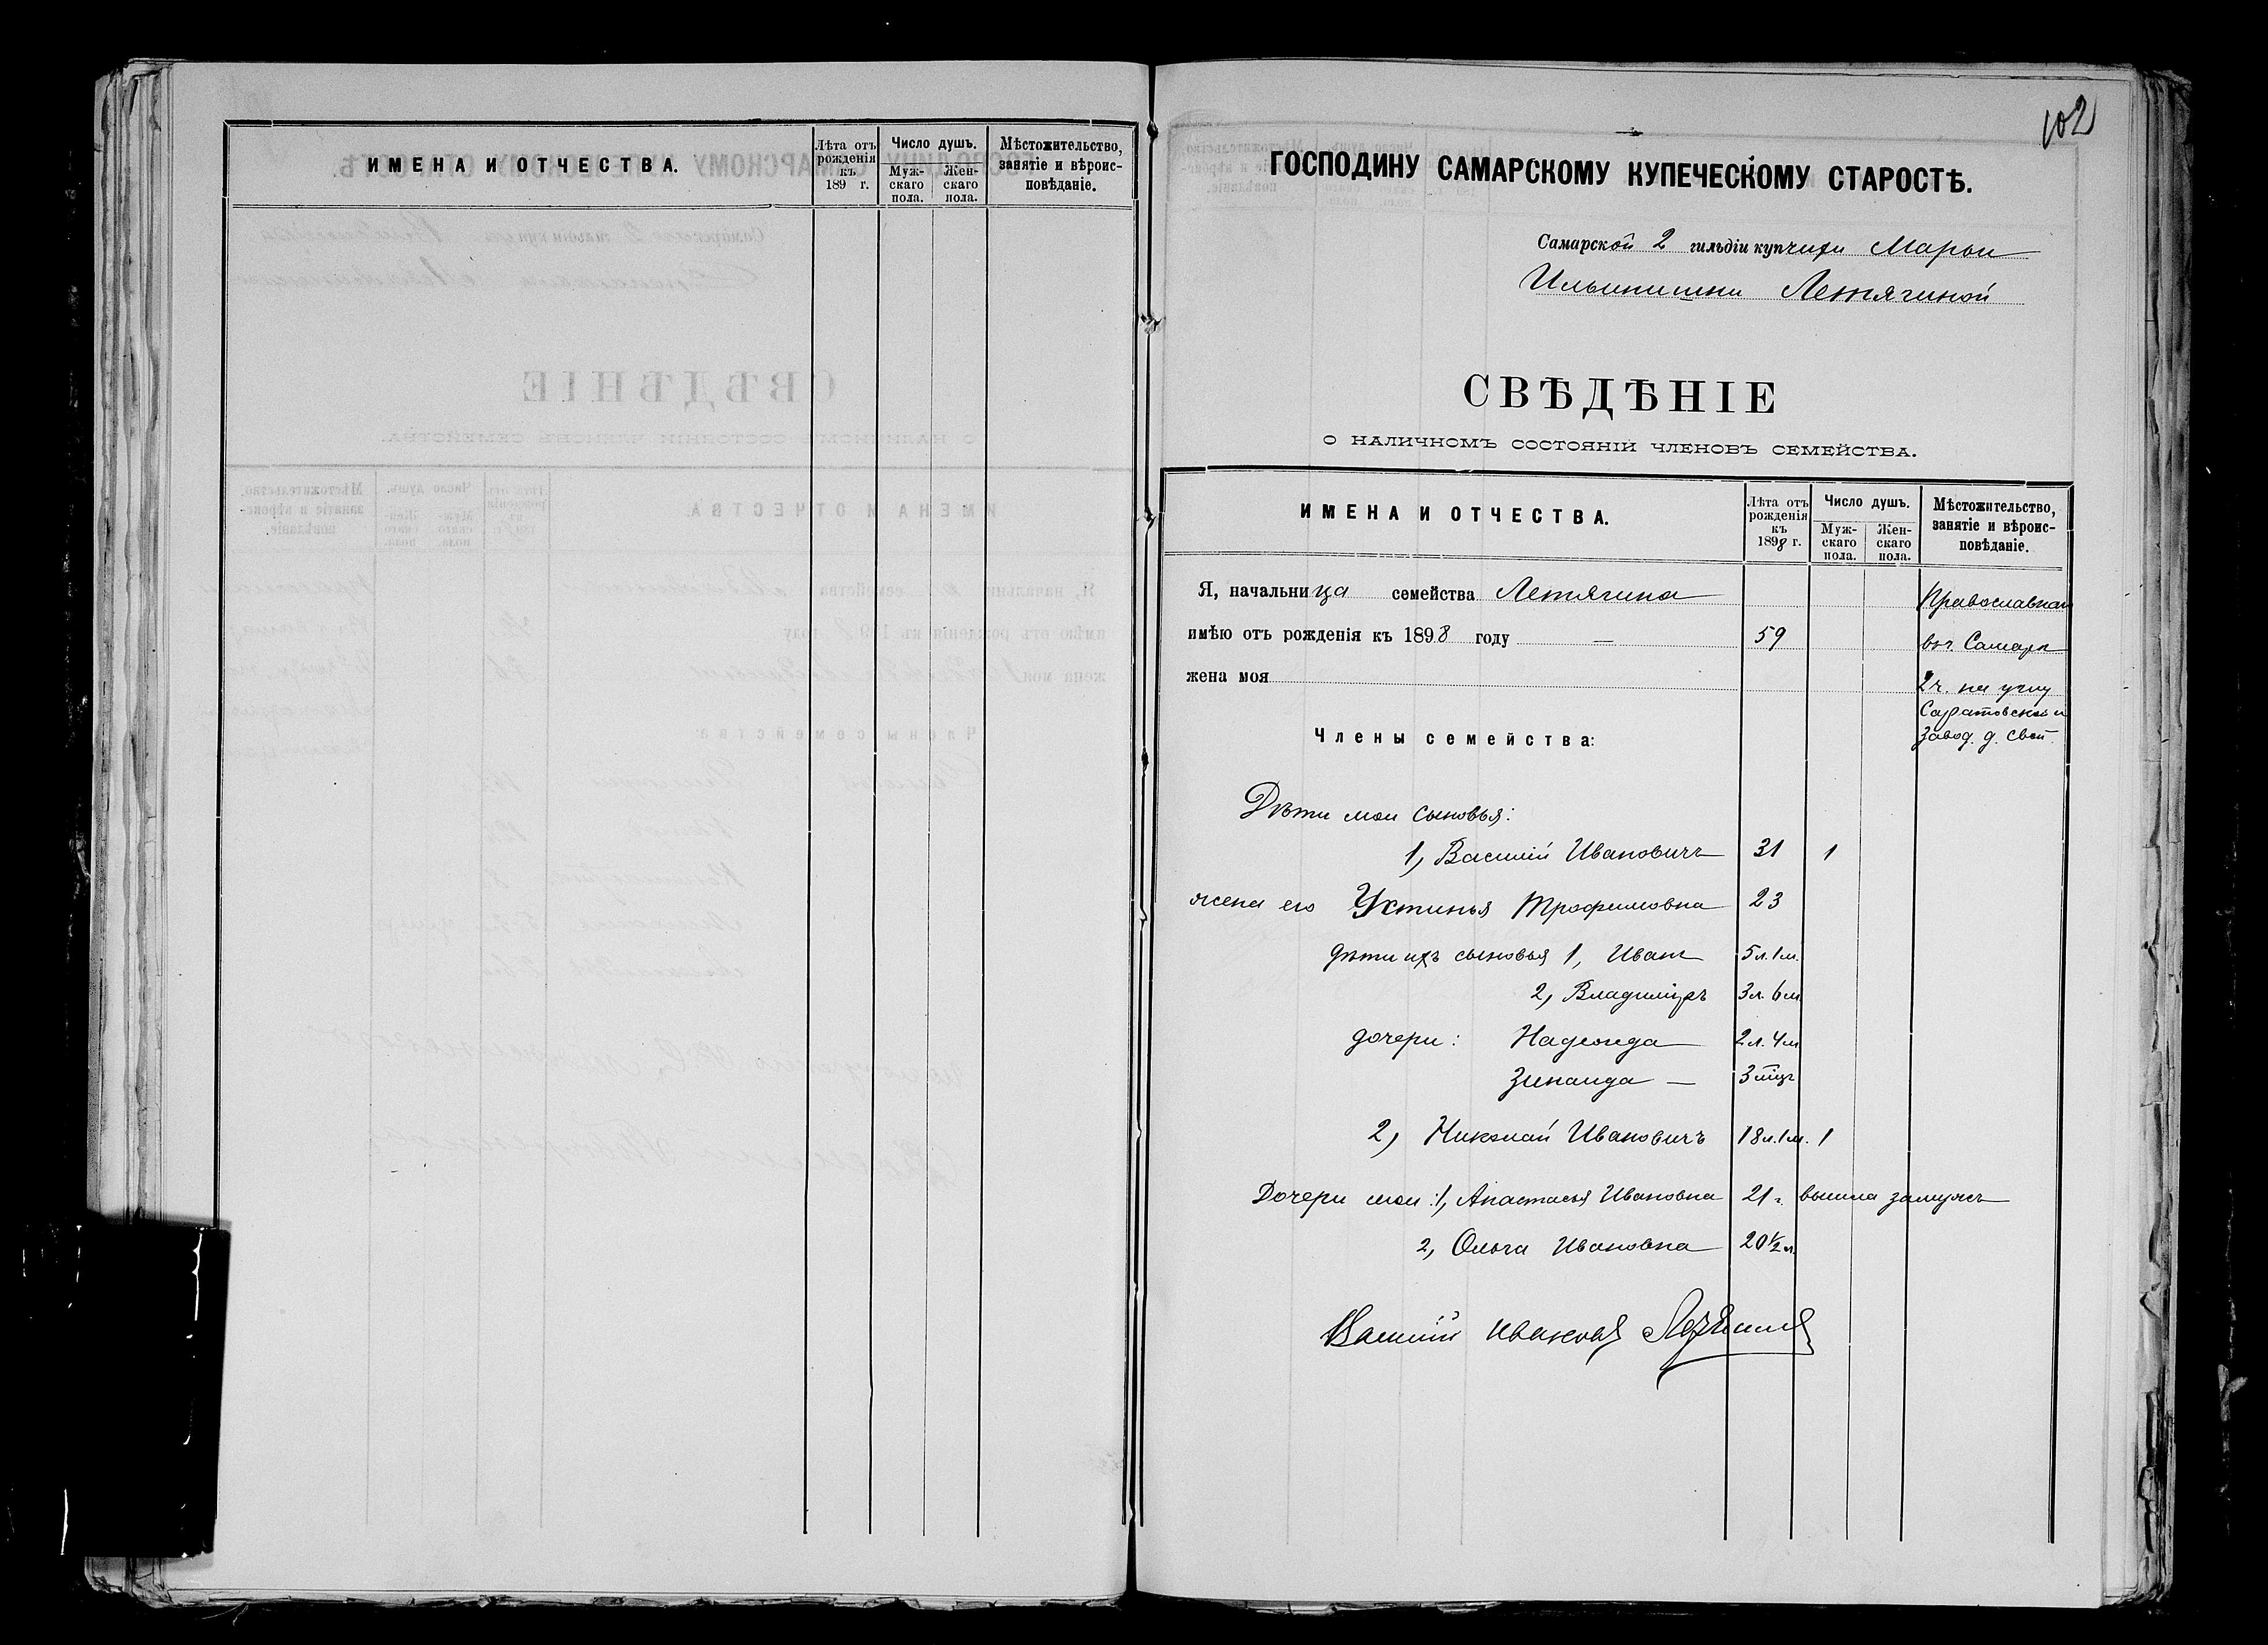 ИМЕНА И ОТЧЕСТВА.
Лѣта отъ рожденія къ 189 г.
Число душъ.
Мужскаго пола.
Женскаго пола.
Мѣстожительство, занятіе и вѣроисповѣданіе.
102
ГОСПОДИНУ САМАРСКОМУ КУПЕЧЕСКОМУ СТАРОСТѢ.
Самарской 2 гильдіи купчихи Марьи
Ильинишни Летягиной
СВѢДѢНІЕ
О НАЛИЧНОМЪ СОСТОЯНІИ ЧЛЕНОВЪ СЕМЕЙСТВА.
ИМЕНА И ОТЧЕСТВА.
Лѣта отъ рожденія къ 1898 г.
Число душъ.
Мужскаго пола.
Женскаго пола.
Мѣстожительство, занятіе и вѣроисповѣданіе.
Я, начальница семейства Летягина Православная
имѣю отъ рожденія къ 1898 году — 59 въ г. Самарѣ
жена моя 2 ч. на углу
Саратовской и
Завод. д. свой.
Члены семейства:
Дѣти мои сыновья:
1, Василій Ивановичъ 31 1
жена его Устинья Трофимовна 23
дѣти ихъ сыновья 1, Иванъ 5 л. 1 м.
2, Владиміръ 3 л. 6 м.
дочери: Надежда 2 л. 4 м
Зинаида — 3 мѣц
2, Николай Ивановичъ 18 л. 1 м. 1
Дочери мои: 1, Анастасья Ивановна 21 г. вышла замужъ
2, Ольга Ивановна 20 1/2 л.
Василій Ивановъ Летягинъ